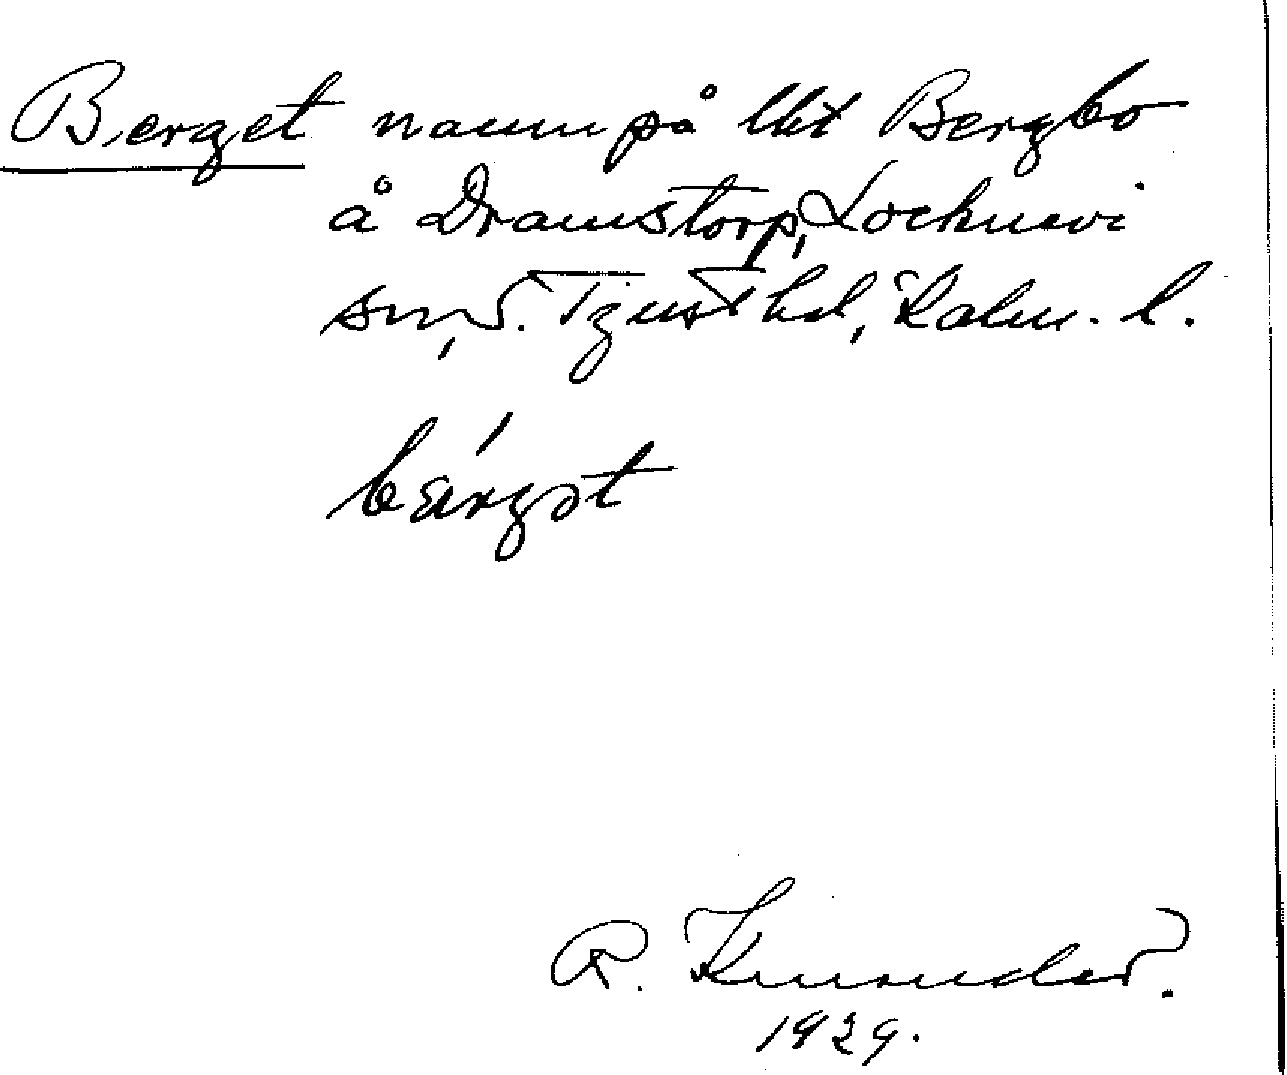 Berget namn på lht Bergbo
å Dramstorp, Locknevi
sn, S. Tjust hd, Kalm. l.
bärgət
R.
1929.